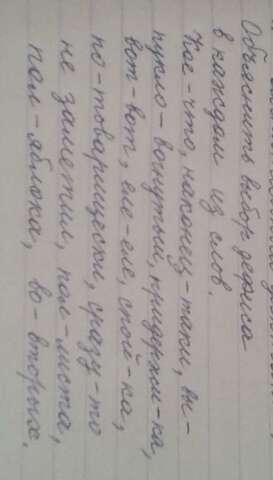 Объяснить выбор дефиса
в каждом из слов.
Кое-что, наконец-таки, вы-
пукло-вогнутый, придержи-ка,
вот-вот, еле-еле, спой-ка,
по-товарищески, сразу-то
не заметил, пол-листа,
пол-яблока, во-вторых.